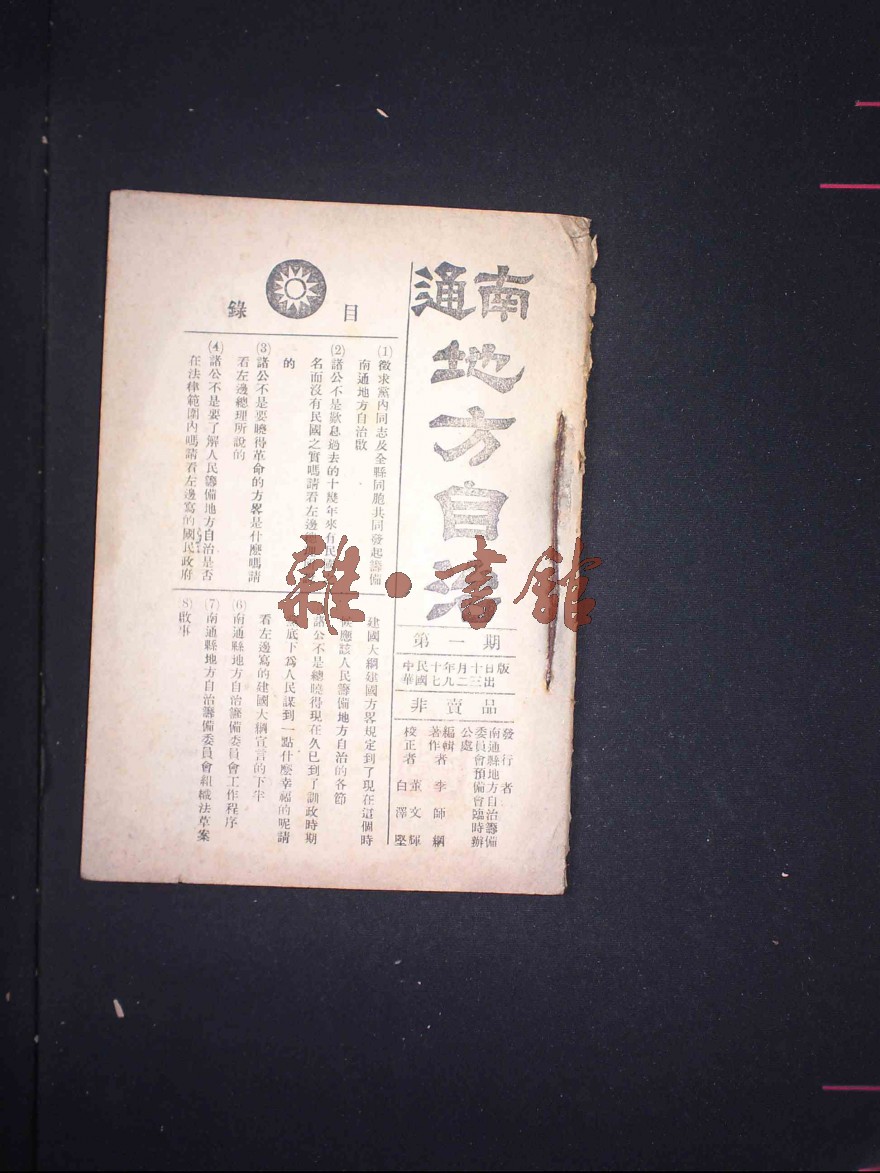 南通
地方自治
第一期
中華民國十七年九月二十三日出版
非賣品
發行者
南通縣地方自治籌備
委員會預備會臨時辦
公處
編輯著作者 李師綱
校正者 董文輝
白澤堅
目錄
(1)徵求黨內同志及全縣同胞共同發起籌備
南通地方自治啟
(2)諸公不是歎息過去的十幾年來有民
名而沒有民國之實嗎請看左邊
的
(3)諸公不是要曉得革命的方畧是什麼嗎請
看左邊總理所說的
(4)諸公不是要了解人民籌備地方自治是否
在法律範圍內嗎請看左邊寫的國民政府
建國大綱建國方畧規定到了現在這個時
應該人民籌備地方自治的各節
諸公不是總曉得現在久已到了訓政時期
底下爲人民謀到一點什麼幸福的呢請
看左邊寫的建國大綱宣言的下半
(6)南通縣地方自治籌備委員會工作程序
(7)南通縣地方自治籌備委員會組織法草案
(8)啟事
雜·書館